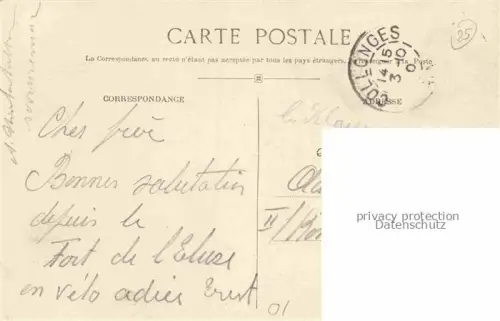 CARTE POSTALE
La Correspondance au recto n'étant pas acceptée par tous les pays étrangers, à la Poste
CORRESPONDANCE
ADRESSE
COLLONGES
14 15
3 -10
0
25
Cher frère
Bonnes salutation
depuis le
Fort de l'Ecluse
en vélo adieu Ernst
II
01
privacy protection
Datenschutz